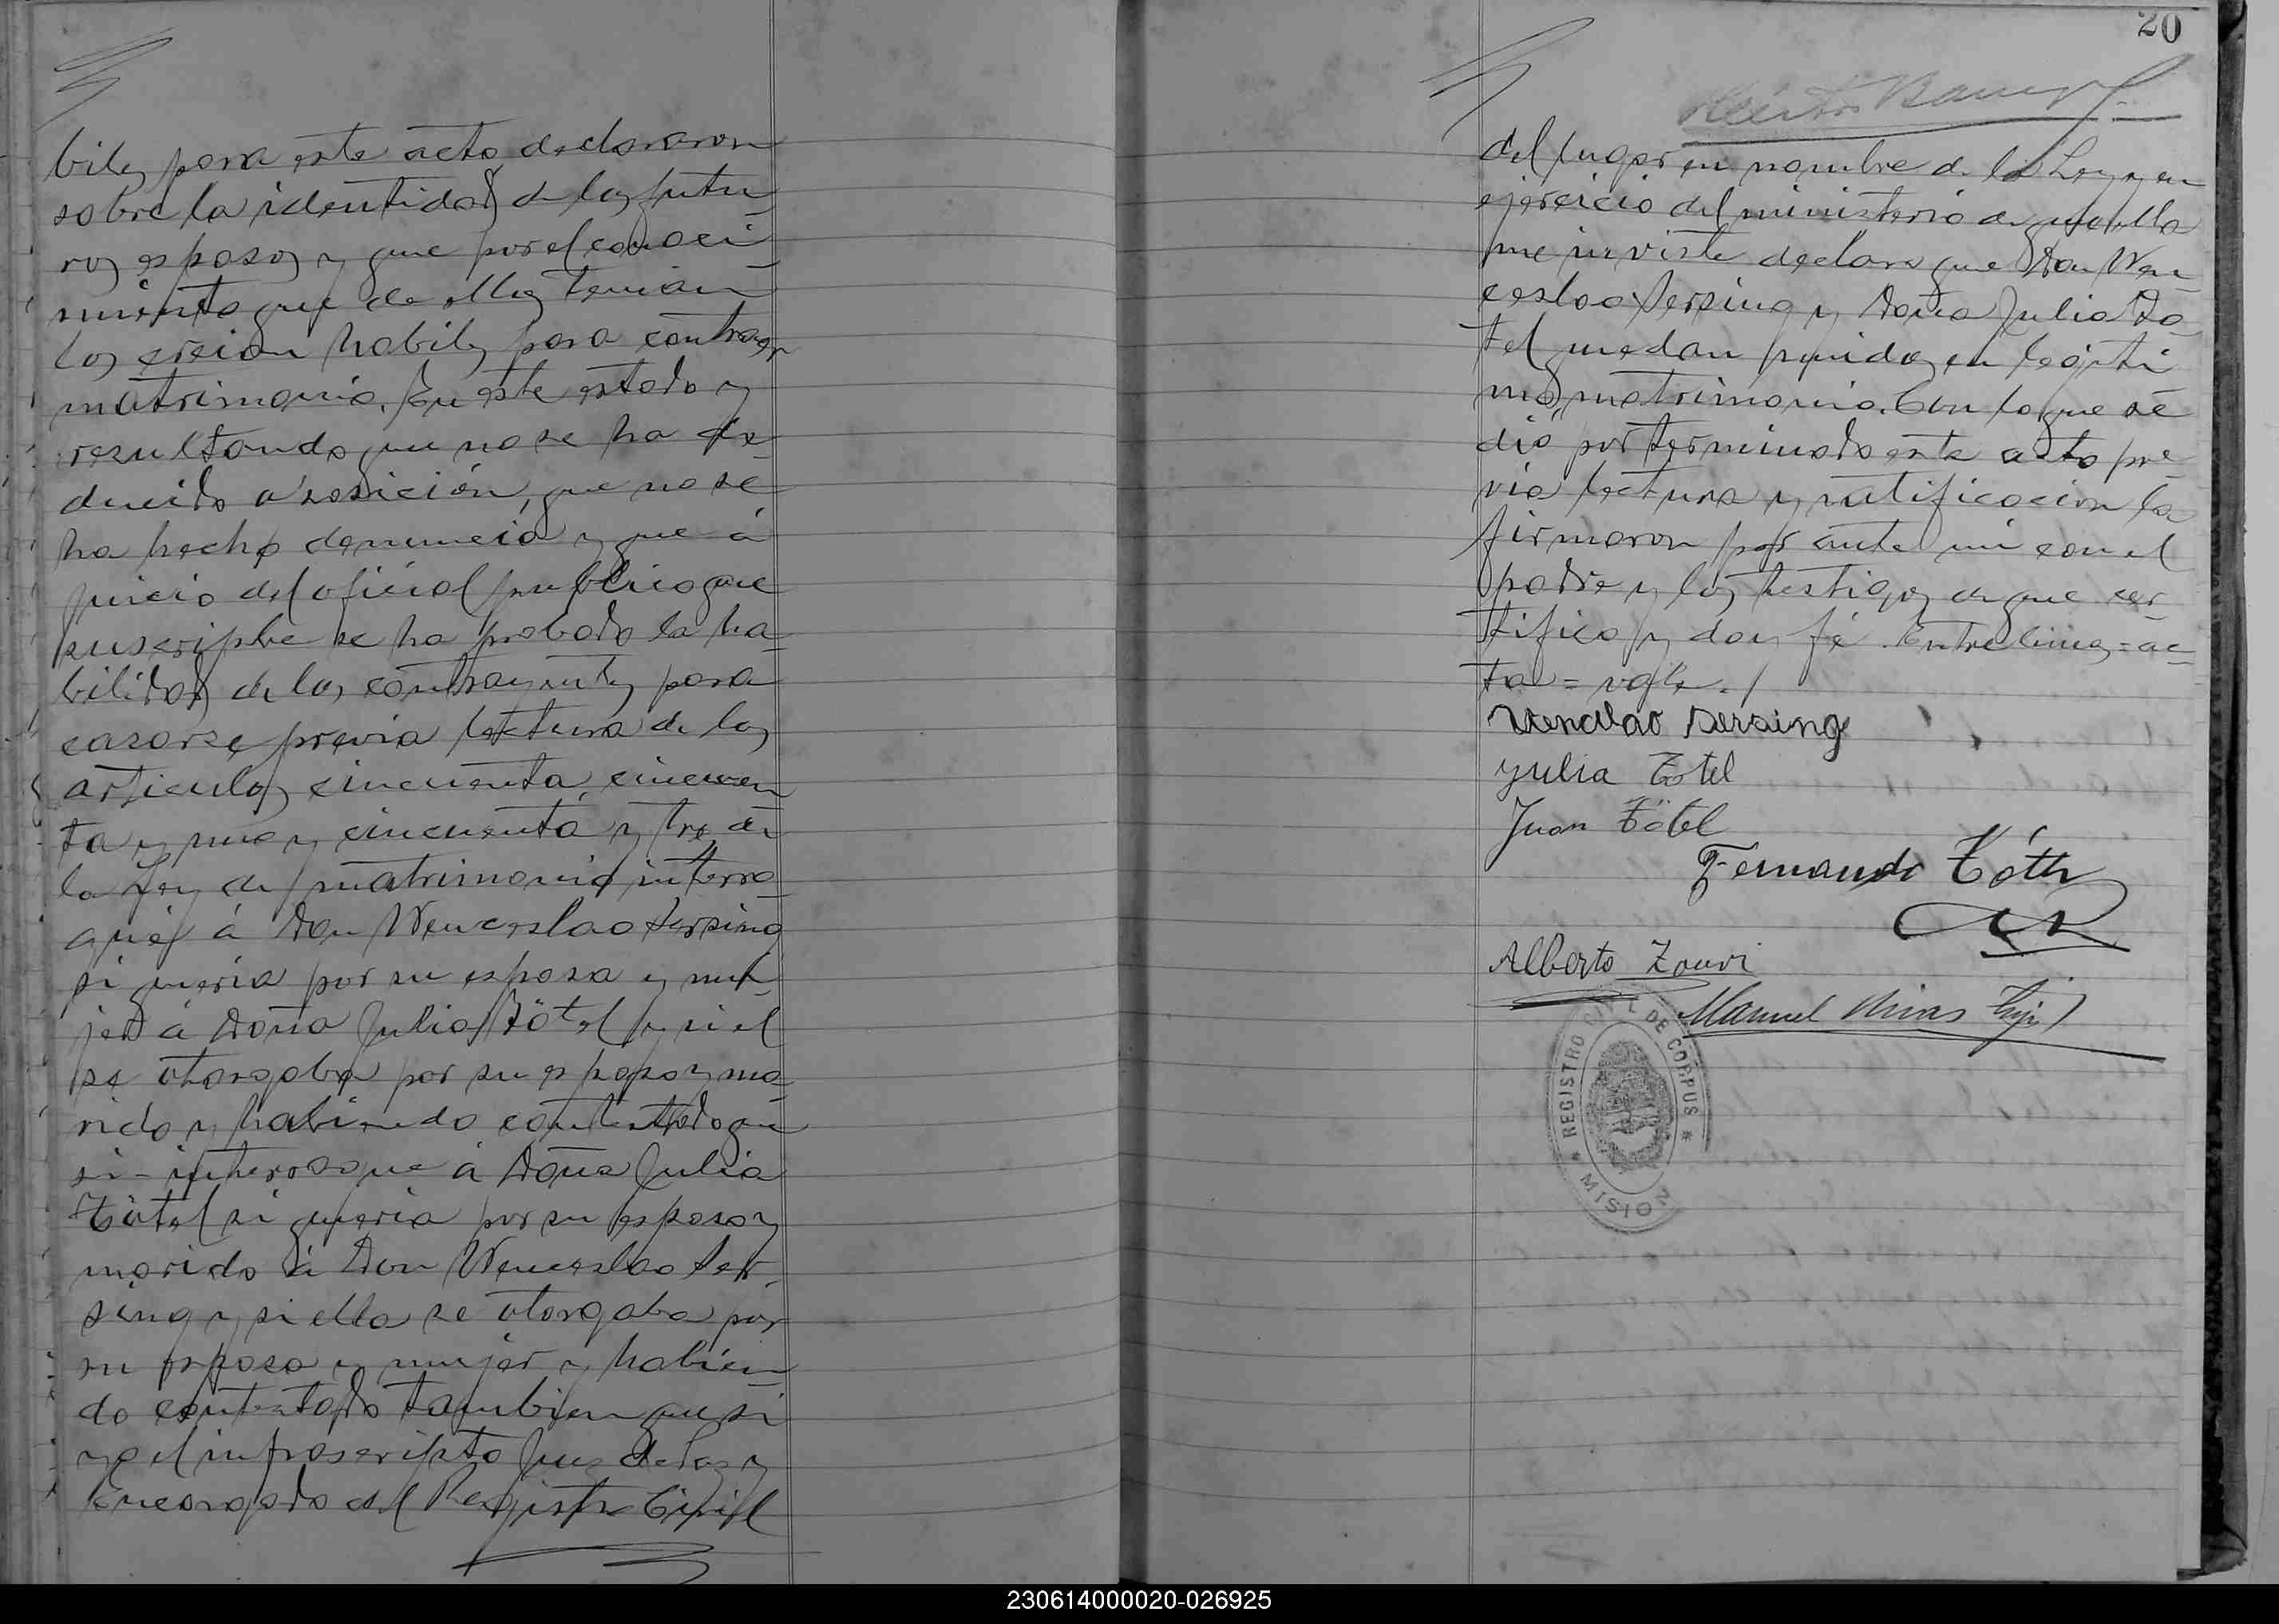 biles para este acto declararon
sobre la identidad de los futu-
ros esposos y que por el conoci-
miento que de ellos tenian
los creian habiles para contraer
matrimonio. En este estado y
resultando que no se ha de-
ducido oposición, que no se
ha hecho denuncia y que á
juicio del oficial publico que
suscribe se ha probado la ha-
bilidad de los contrayentes para
casarse previa lectura de los
articulos cincuenta, cincuen-
ta y uno y cincuenta y tres de
la Ley de matrimonio interro-
gué á Don Wenceslao Sersing
si queria por su esposa y mu-
jer á Doña Julia Tötel y si el
se otorgaba por su esposo y ma-
rido y habiendo contestado que
si - interrogue á Doña Julia
Tötel si queria por su esposo y
marido á Don Wenceslao Ser-
sing y si ella se otorgaba por
su esposa y mujer y habien-
do contestado tambien que si
yo el infrascripto Juez de Paz y
Encargado del Registro Civil
20
del lugar en nombre de la Ley y en
ejercicio del ministerio de que ella
me inviste declaro que Don Wen-
ceslao Sersing y Doña Julia Tö-
tel quedan unidos en legiti-
mo matrimonio. Con lo que se
dió por terminado este acto pre-
via lectura y ratificacion la
firmaron por ante mi con el
padre y los testigos de que cer-
tifico y doy fé. Entre lineas = ac-
ta = vale.
Wenclao Sersing
Yulia Totel
Juan Tötel
Fernando Tóth
Alberto Zouvi
Manuel Arias hijo
REGISTRO CIVIL DE CORPUS
MISION
230614000020-026925